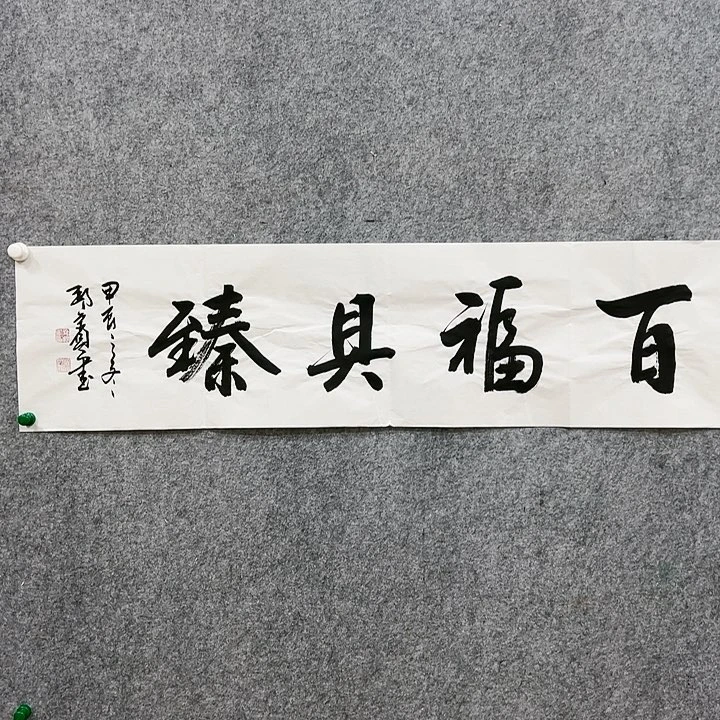 百福具臻
甲辰之冬
書